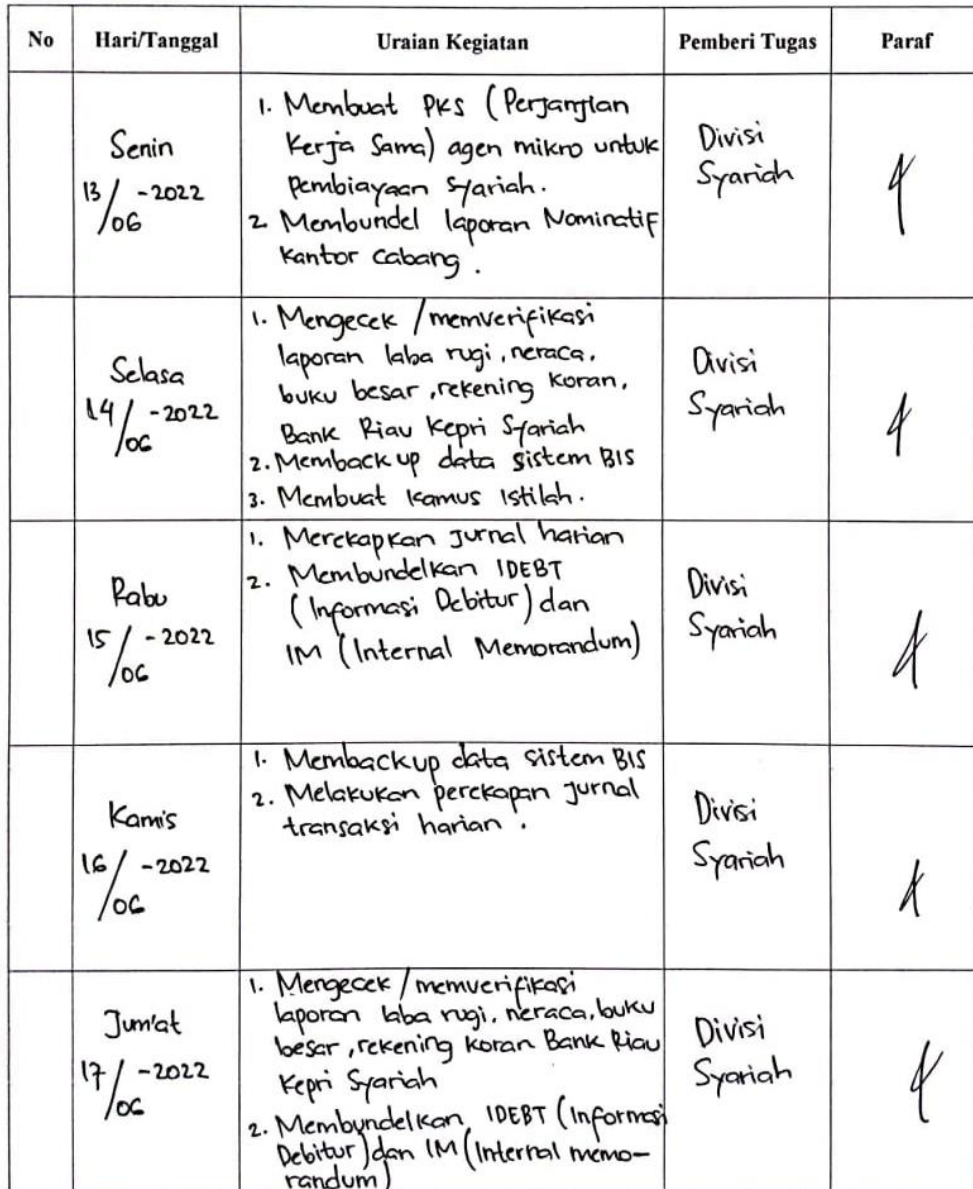 No Hari/Tanggal Uraian Kegiatan Pemberi Tugas Paraf
Senin
13/06-2022
1. Membuat PKS (Perjanjian
Kerja Sama) agen mikro untuk
Pembiayaan Syariah.
2. Membundel laporan Nominatif
Kantor Cabang.
Divisi
Syariah
Selasa
14/06-2022
1. Mengecek/memverifikasi
laporan laba rugi, neraca,
buku besar, rekening Koran,
Bank Riau Kepri Syariah
2. Memback up data sistem BIS
3. Membuat Kamus Istilah.
Divisi
Syariah
Rabu
15/06-2022
1. Merekapkan Jurnal harian
2. Membundelkan IDEBT
(Informasi Debitur) dan
IM (Internal Memorandum)
Divisi
Syariah
Kamis
16/06-2022
1. Membackup data sistem BIS
2. Melakukan perekapan Jurnal
transaksi harian.
Divisi
Syariah
Jum'at
17/06-2022
1. Mengecek/memverifikasi
laporan laba rugi, neraca, buku
besar, rekening Koran Bank Riau
Kepri Syariah
2. Membundelkan IDEBT (Informasi
Debitur) dan IM (Internal memo-
randum)
Divisi
Syariah